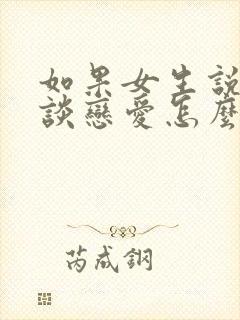 如果女生說
談戀愛怎麼
芮成鋼